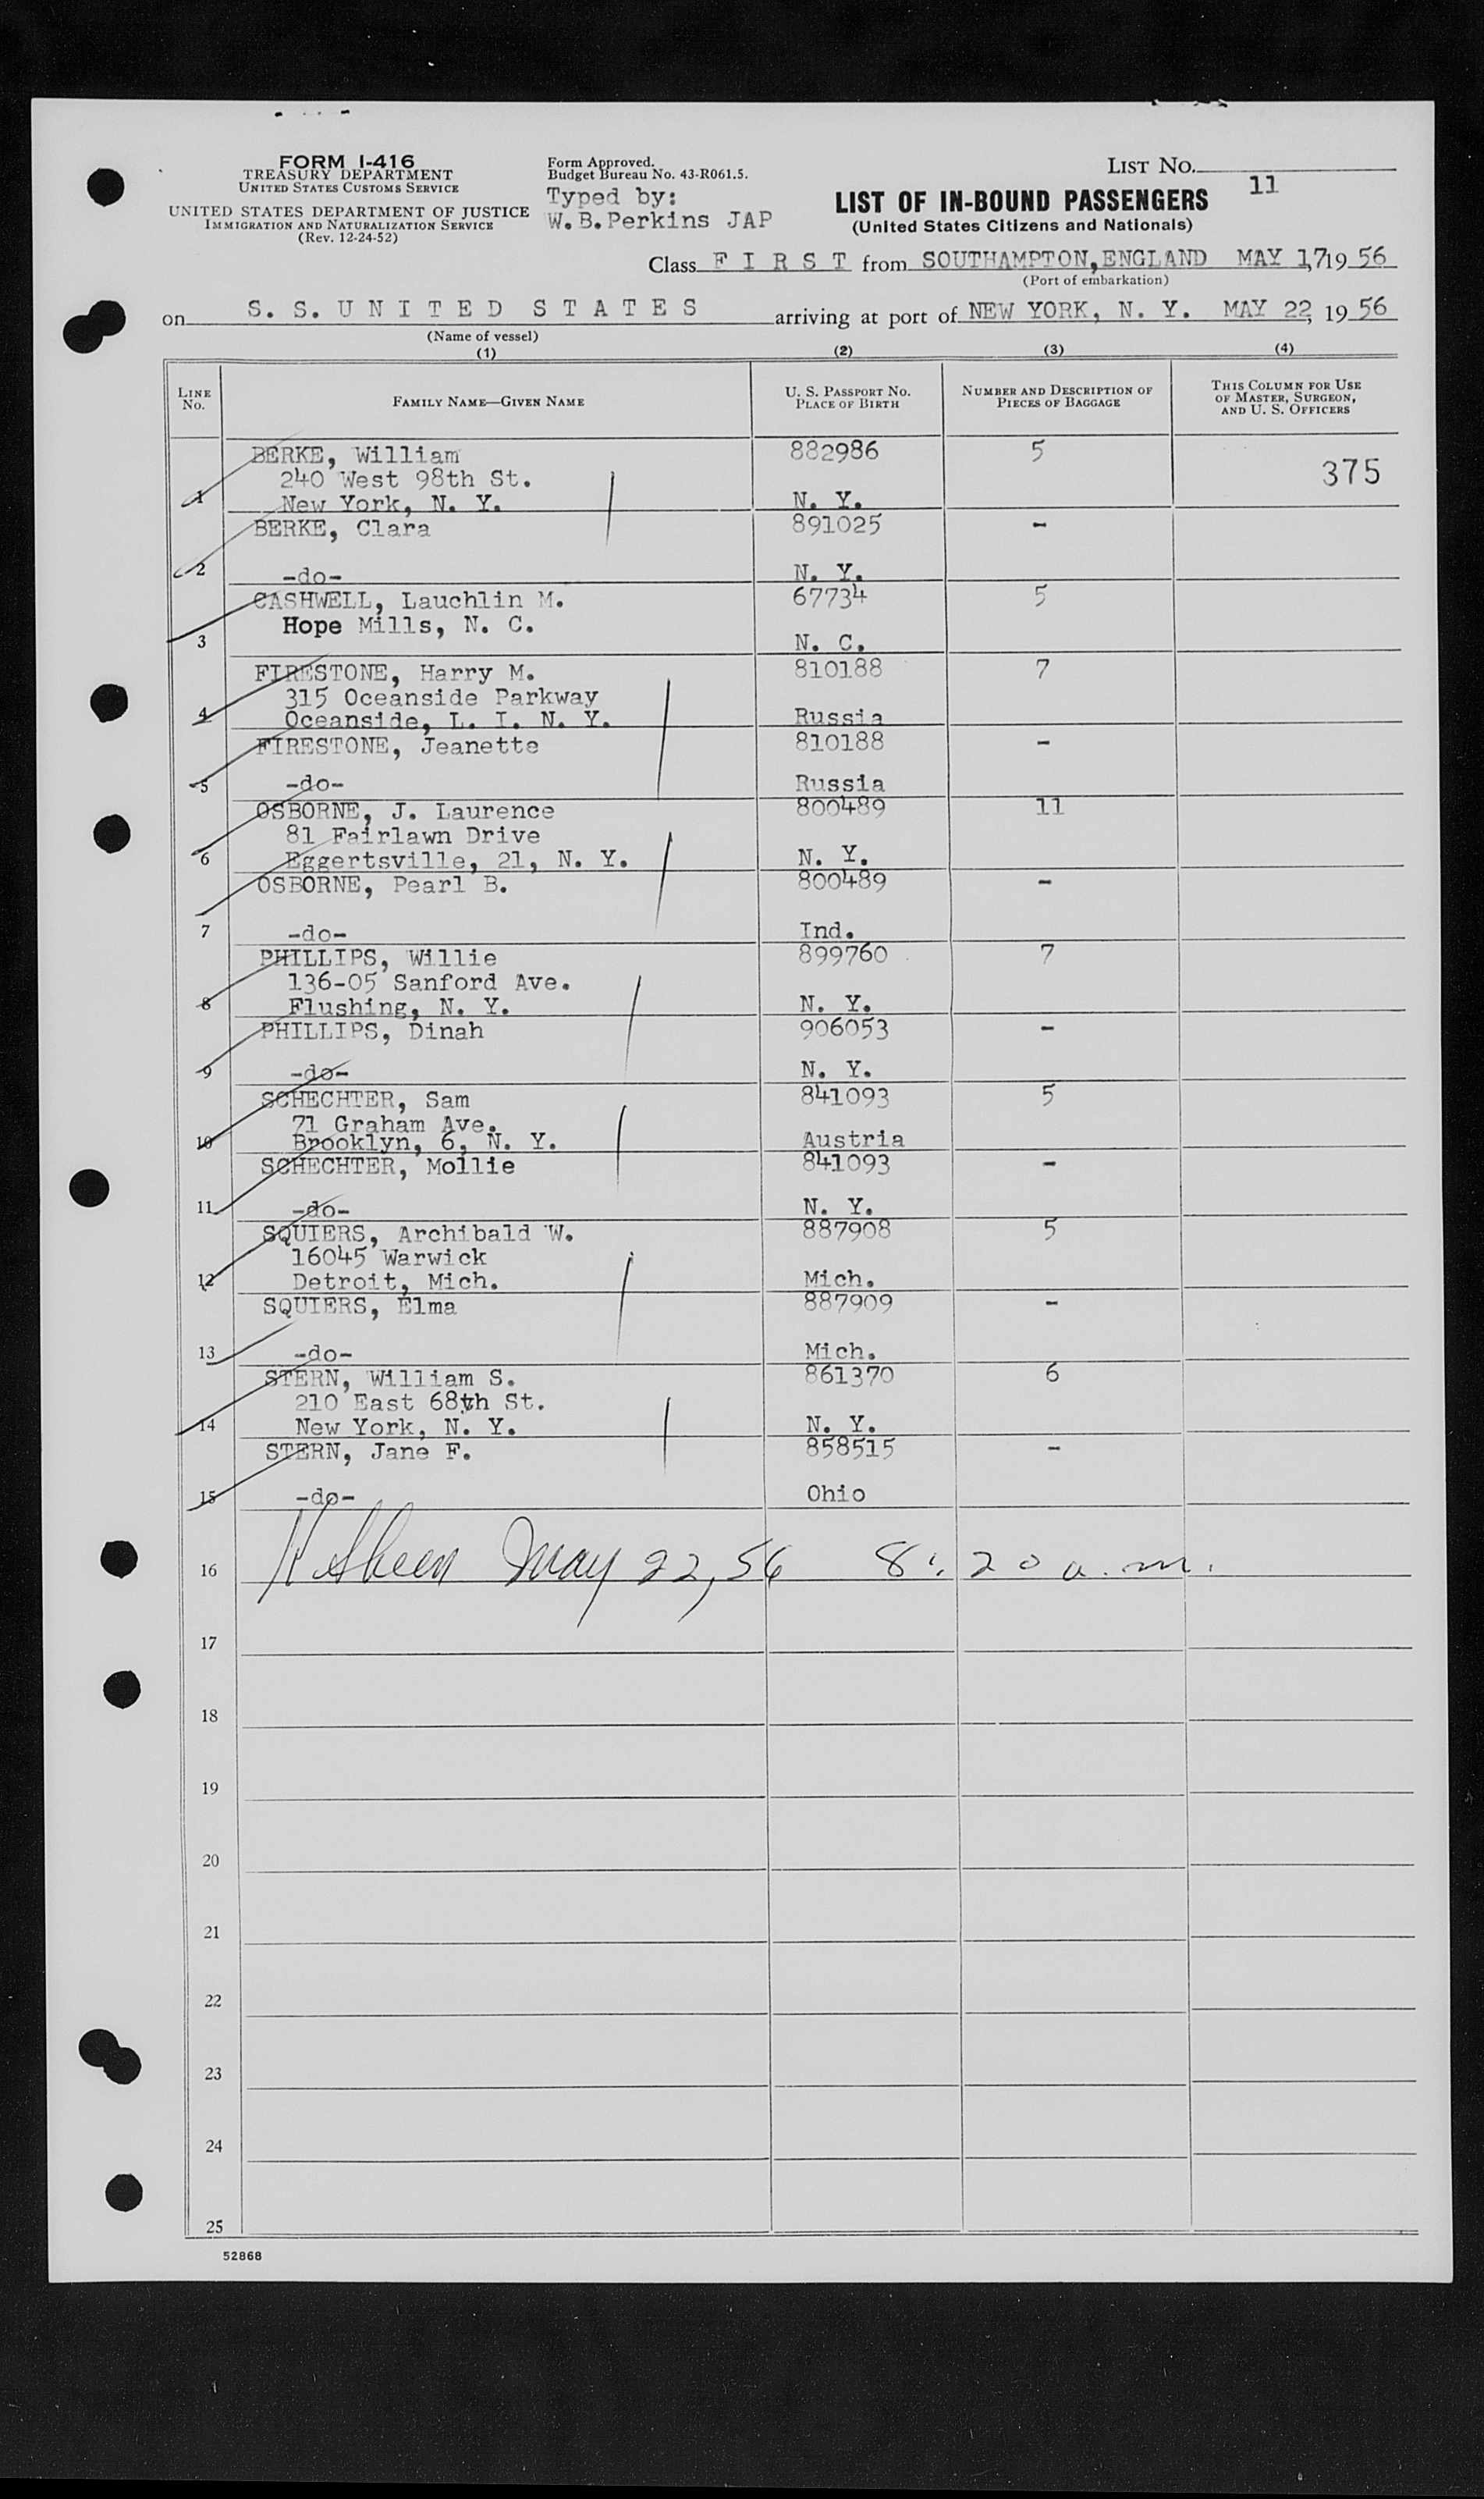 FORM I-416
TREASURY DEPARTMENT
UNITED STATES CUSTOMS SERVICE
UNITED STATES DEPARTMENT OF JUSTICE
IMMIGRATION AND NATURALIZATION SERVICE
(Rev. 12-24-52)
Form Approved.
Budget Bureau No. 43-R061.5.
Typed by:
W.B.Perkins JAP
LIST NO. 11
LIST OF IN-BOUND PASSENGERS
(United States Citizens and Nationals)
Class F I R S T from SOUTHAMPTON,ENGLAND MAY 17, 19 56
(Port of embarkation)
on S. S. U N I T E D S T A T E S arriving at port of NEW YORK, N. Y. MAY 22, 19 56
(Name of vessel)
(1) (2) (3) (4)
LINE NO. FAMILY NAME—GIVEN NAME U. S. PASSPORT NO. PLACE OF BIRTH NUMBER AND DESCRIPTION OF PIECES OF BAGGAGE THIS COLUMN FOR USE OF MASTER, SURGEON, AND U. S. OFFICERS
BERKE, William 882986 5 375
240 West 98th St.
1 New York, N. Y. N. Y.
BERKE, Clara 891025 -
2 -do- N. Y.
CASHWELL, Lauchlin M. 67734 5
Hope Mills, N. C.
3 N. C.
FIRESTONE, Harry M. 810188 7
315 Oceanside Parkway
4 Oceanside, L. I. N. Y. Russia
FIRESTONE, Jeanette 810188 -
5 -do- Russia
OSBORNE, J. Laurence 800489 11
81 Fairlawn Drive
6 Eggertsville, 21, N. Y. N. Y.
OSBORNE, Pearl B. 800489 -
7 -do- Ind.
PHILLIPS, Willie 899760 7
136-05 Sanford Ave.
8 Flushing, N. Y. N. Y.
PHILLIPS, Dinah 906053 -
9 -do- N. Y.
SCHECHTER, Sam 841093 5
71 Graham Ave.
10 Brooklyn, 6, N. Y. Austria
SCHECHTER, Mollie 841093 -
11 -do- N. Y.
SQUIERS, Archibald W. 887908 5
16045 Warwick
12 Detroit, Mich. Mich.
SQUIERS, Elma 887909 -
13 -do- Mich.
STERN, William S. 861370 6
210 East 68th St.
14 New York, N. Y. N. Y.
STERN, Jane F. 858515 -
15 -do- Ohio
16 May 22, 56 8:20 a.m.
17
18
19
20
21
22
23
24
25
52868